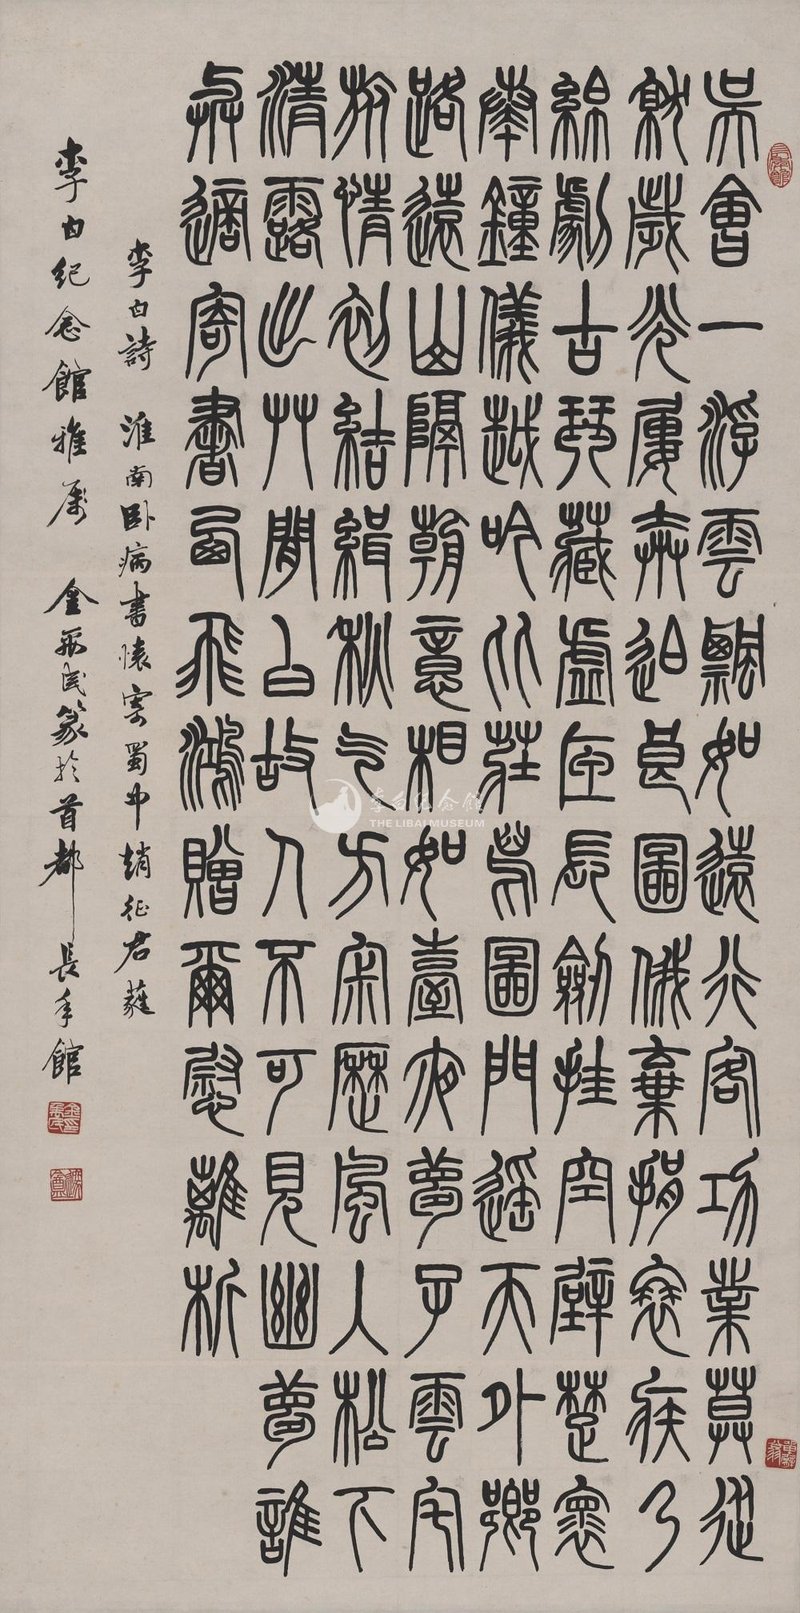 吳會一浮雲飄如遠行客功業莫從
就歲光屢奔迫良圖俄棄捐衰疾乃
綿劇古琴藏虛匣長劍挂空壁楚褱
奏鐘儀越吟比莊舄圖門遙天外鄉
路遠山隔朝意相如臺夜夢子雲宅
旅情初結緝秋气方宋歷風入松下
清露出艸閒白故人不可見幽夢誰
與適寄書西飛鴻贈爾慰離析
李白詩 淮南卧病書懷寄蜀中趙征君蕤
李白紀念館雅屬 金民篆於首都長年館
李白纪念馆
THE LIBAI MUSEUM